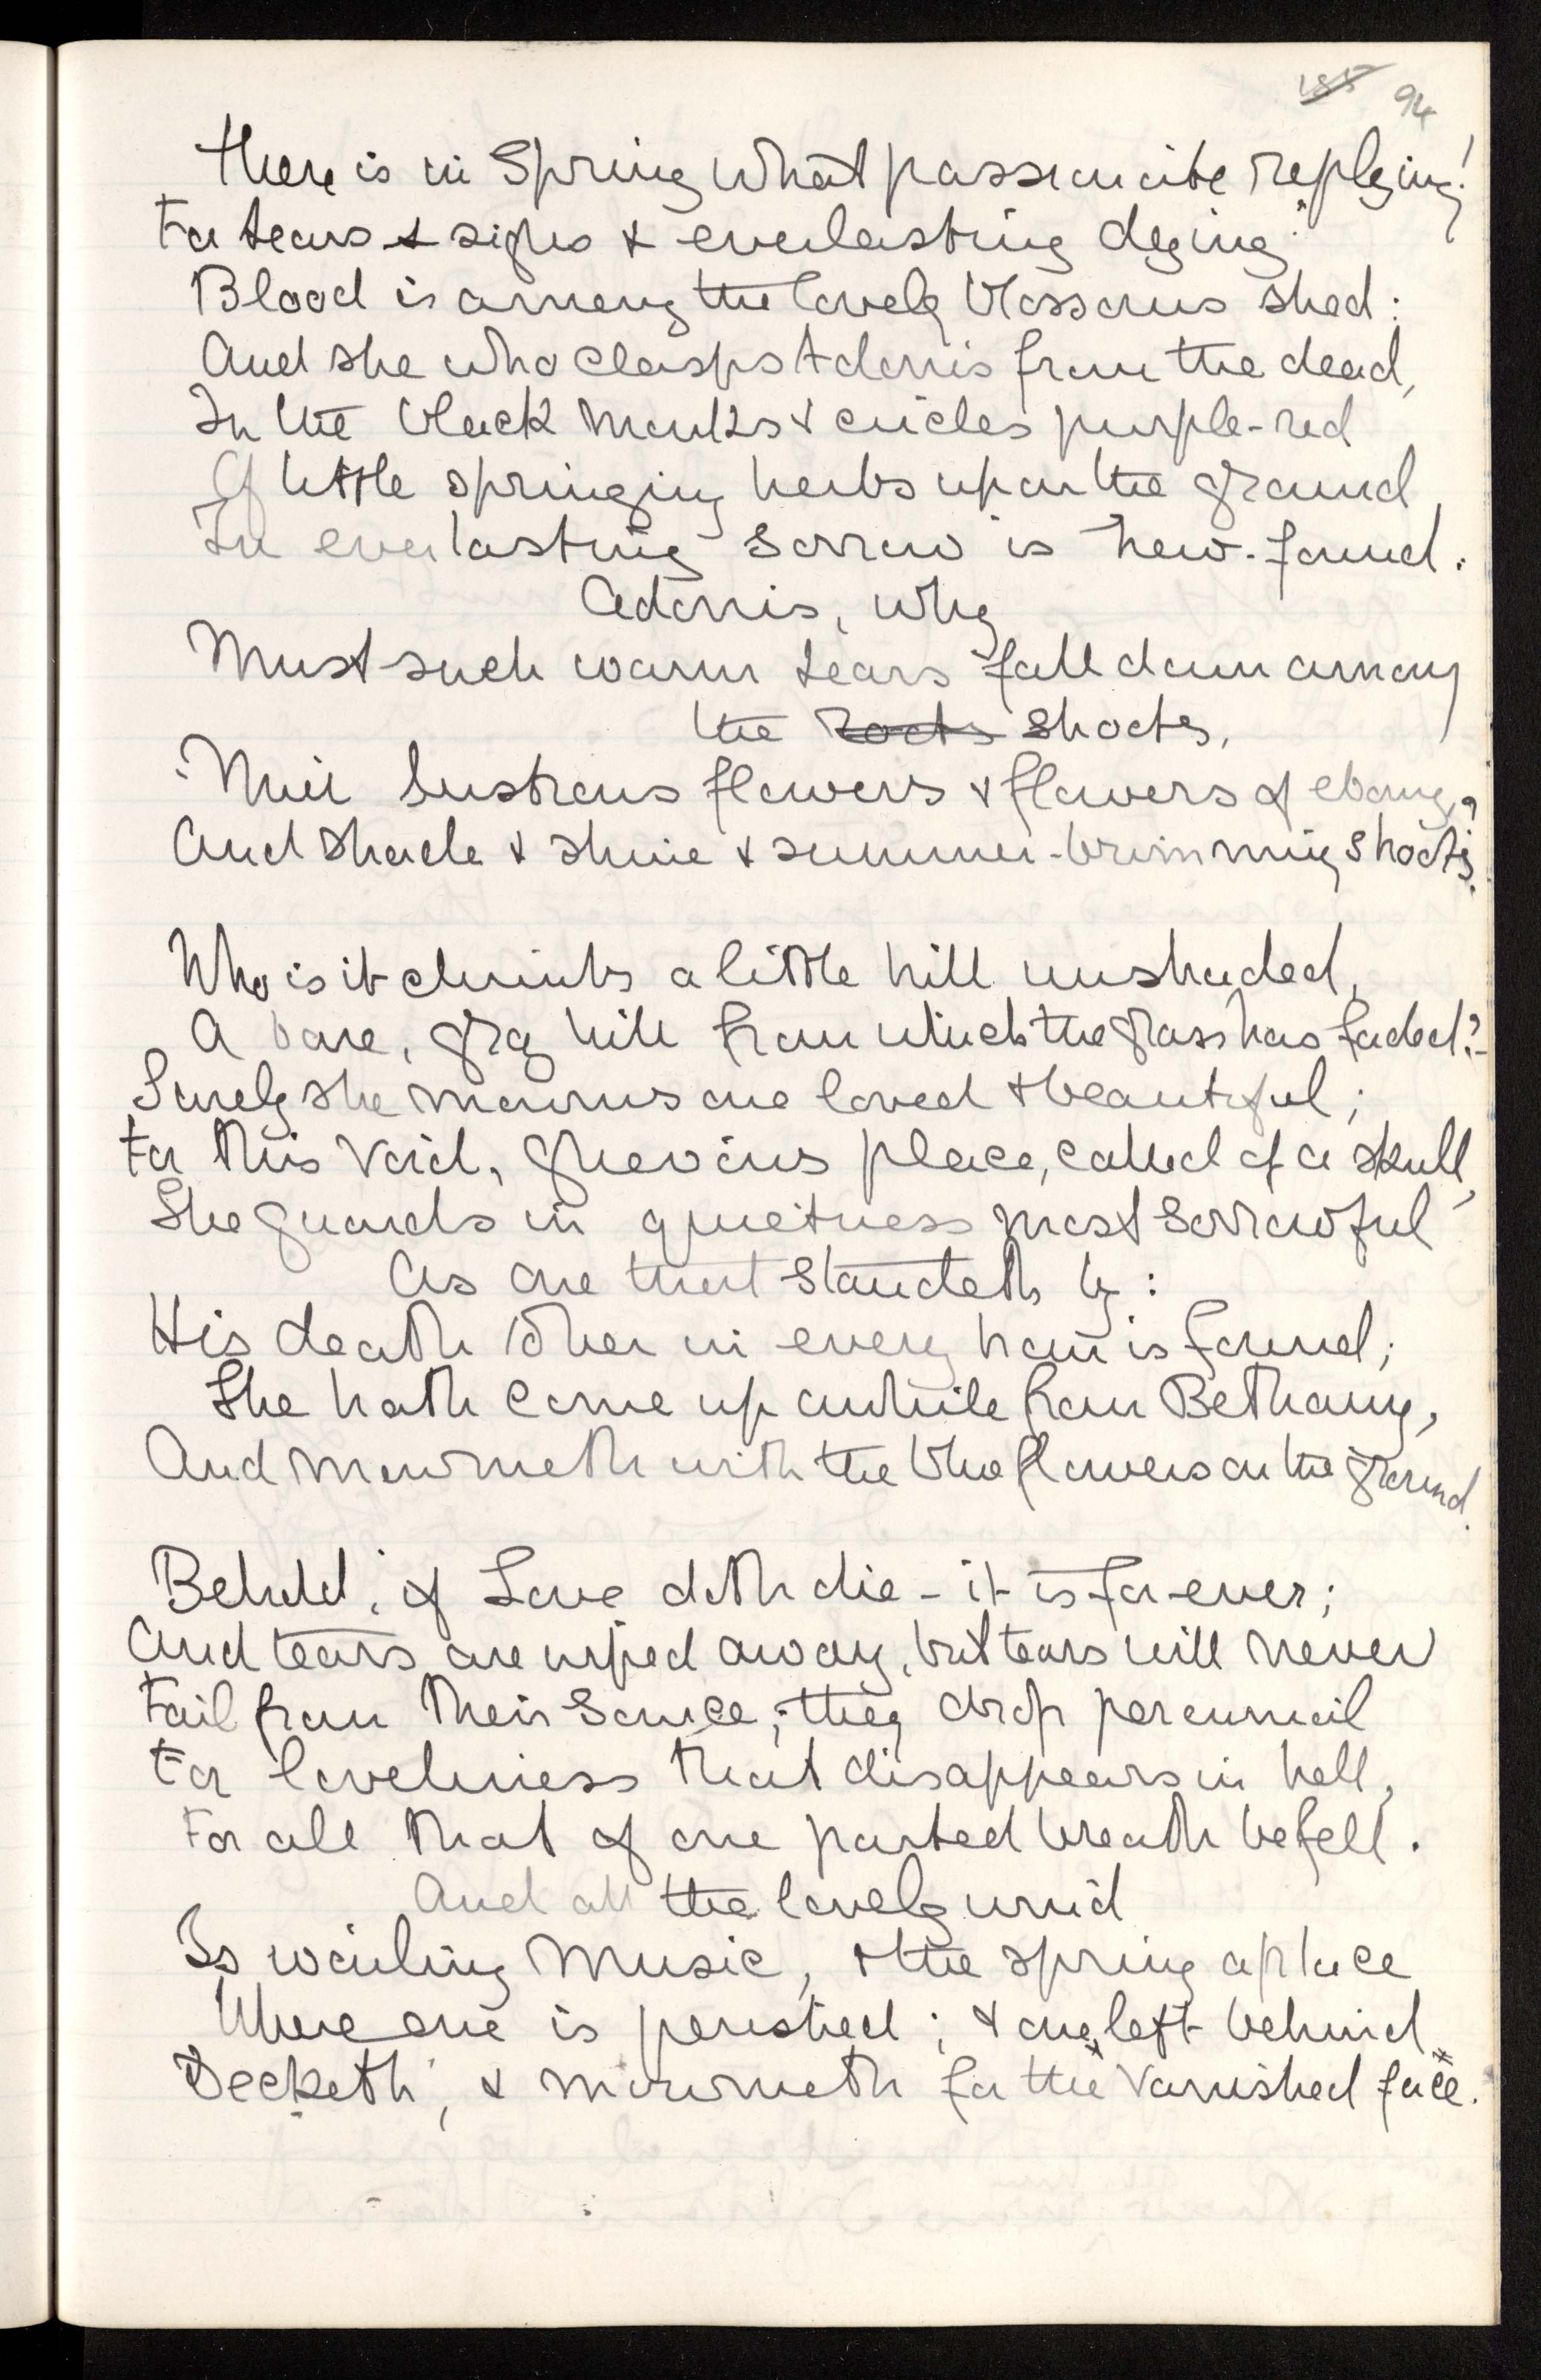 94
There is in Spring what passionate replying!
For tears & sighs & everlasting dying.
Blood is among the lovely blossoms shed:
And she who clasps Adonis from the dead,
In the black marks & circles purple-red
Of little springing herbs upon the ground,
In everlasting sorrow is new-found.
Adonis, why
Must such warm tears fall down among
the roots shoots,
Their lustrous flowers & flowers of ebony,
And shade & shine & summer-brimming shoots?
Who is it climbs a little hill unshaded,
A bare, gray hill from which the grass has faded?-
Surely she mourns one loved & beautiful;
For this void, grievous place, called of a skull,
She guards in quietness most sorrowful
As one that standeth by:
His death in every is found;
She hath come up awhile from Bethany,
And mourneth with the blue flowers on the ground.
Behold, if Love doth die - it is for-ever;
And tears are wiped away, but tears will never
Fail from their source; they drop perennial
For loveliness that disappears in hell,
For all that of one parted breath befell.
And all the lovely wind
Is wailing music, & the spring a place
Where one is perished; & one, left behind
Seeketh, & mourneth for the vanished face.